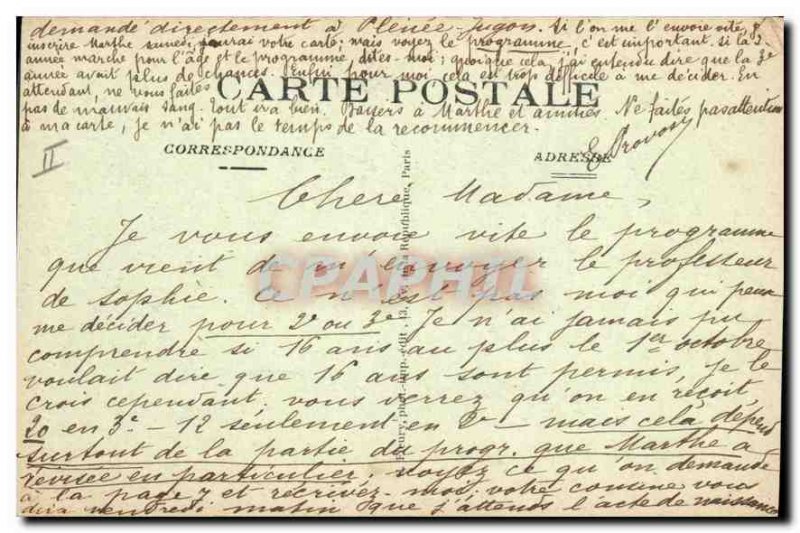 demandé directement à Plénée-Jugon. Si l'on me l'envoie vite, &
inscrire Marthe samedi, j'aurai votre carte; mais voyez le programme, c'est important. Si la 2e
année marche pour l'âge et le programme, dites-moi; quoique cela, j'ai entendu dire que la 3e
année avait plus de chances. Enfin pour moi cela est trop difficile à me décider. En
attendant, ne vous faites
pas de mauvais sang. Tout ira bien. Baisers à Marthe et amitiés. Ne faites pas attention
à ma carte, je n'ai pas le temps de la recommencer.
E. Provost
CARTE POSTALE
II
CORRESPONDANCE
ADRESSE
Chere Madame,
Je vous envoie vite le programme
que vient de m'envoyer le professeur
de Sophie. Ce n'est pas moi qui peux
me décider pour 2e ou 3e. Je n'ai jamais pu
comprendre si 16 ans au plus le 1er octobre
voulait dire que 16 ans sont permis, je le
crois cependant. Vous verrez qu'on en reçoit
20 en 3e - 12 seulement en 2e - mais cela dépend
surtout de la partie du progr. que Marthe a
révisée en particulier, voyez ce qu'on demande
à la page 7 et récrivez-moi, votre cousine vous
dira vendredi matin que j'attends l'acte de naissance
phot. imp. édit. 13, de la République, Paris
CPAPHIL